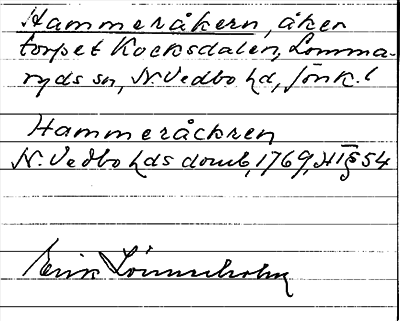 Hammeråkern, åker
torpet Kocksdalen, Lomma-
ryds sn, N. Vedbo hd, Jönk. l
Hammeråckren
N. Vedbo hds domb, 1769, HT § 54
Erik Lönnerholm